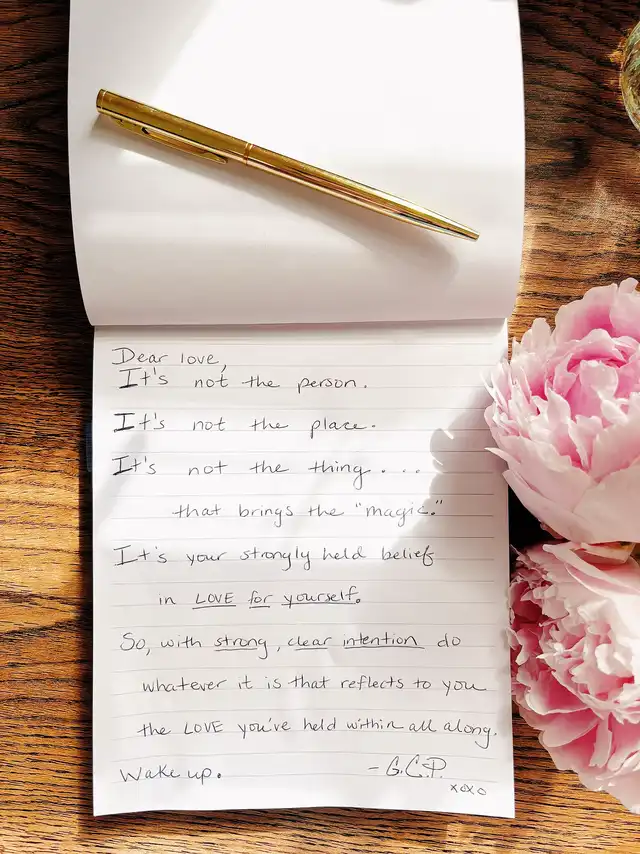 Dear love,
It's not the person.
It's not the place.
It's not the thing....
that brings the "magic."
It's your strongly held belief
in LOVE for yourself.
So, with strong, clear intention do
whatever it is that reflects to you
the LOVE you've held within all along.
Wake up. - G.C.P.
xoxo